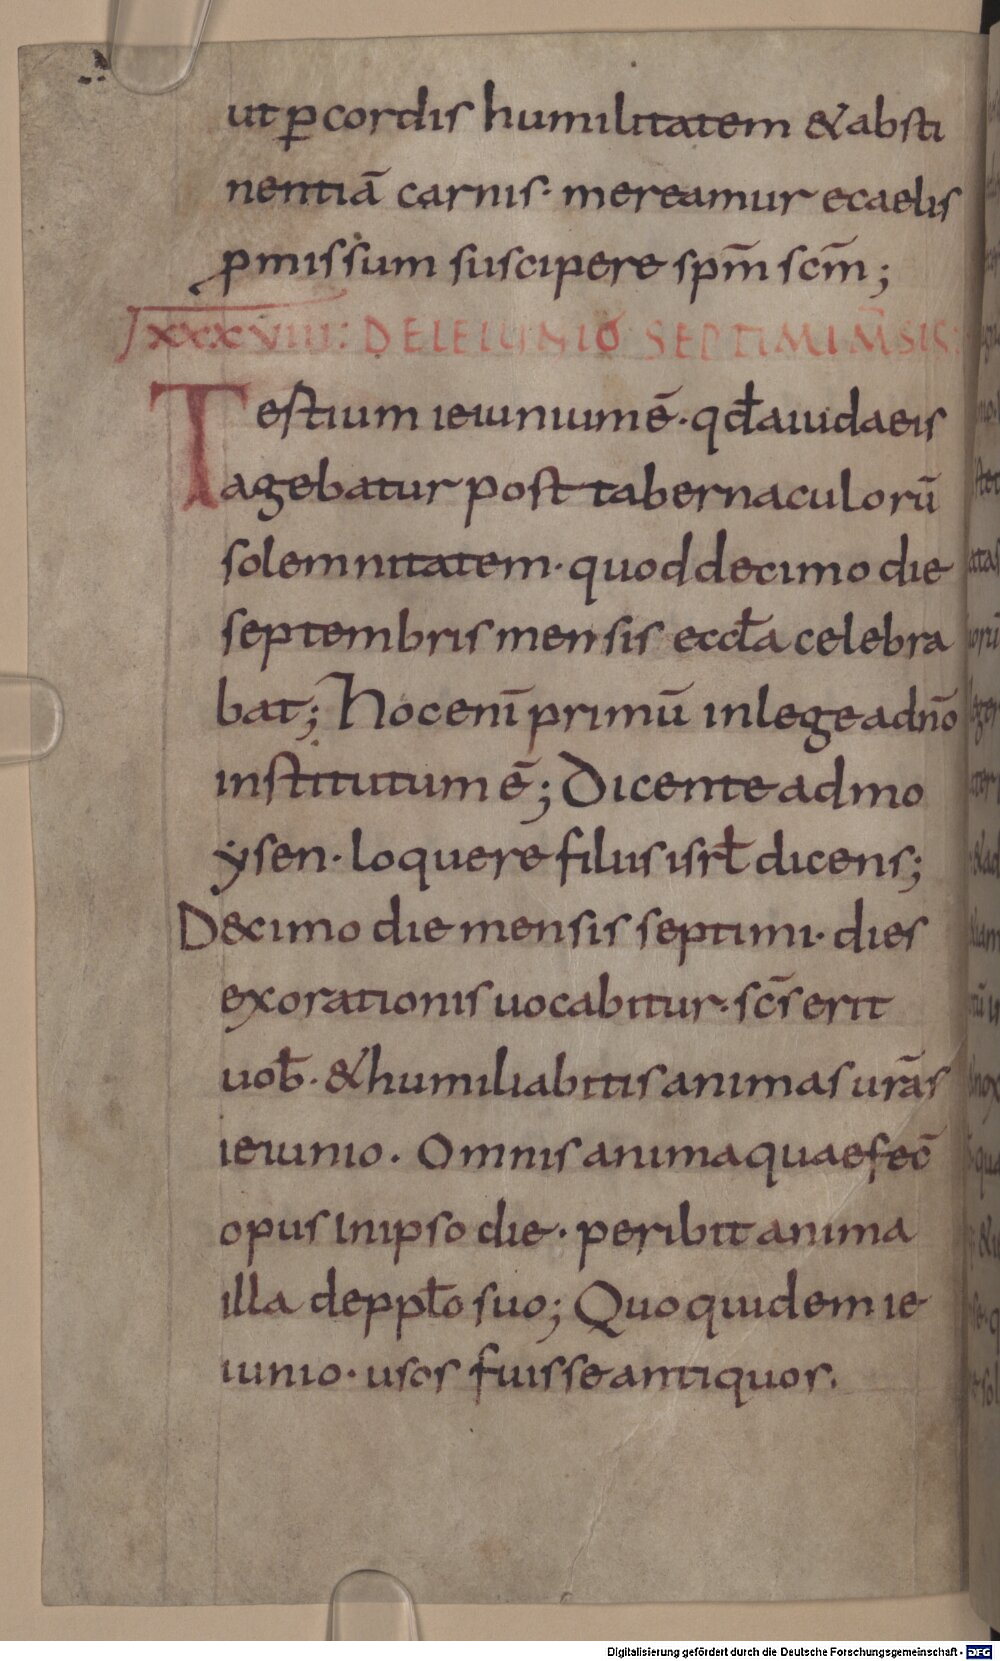 ut ꝑ cordis humilitatem & absti
nentiā carnis· mereamur e caelis
ꝓmissum suscipere sp̄m sc̄m;
XXXVIII: DE IEIUNIO SEPTIMI M̄SIS:
Tertium ieiunium ē· qd̄ a iudaeis
agebatur post tabernaculorū
solemnitatem· quod decimo die
septembris mensis eccl̄a celebra
bat; Hoc enī primū in lege a dn̄o
institutum ē; Dicente ad mo
ysen· loquere filiis isrl̄ dicens;
Decimo die mensis septimi· dies
exorationis uocabitur· sc̄s erit
uob̄· & humiliabitis animas ur̄as
ieiunio· Omnis anima quae fec̄
opus in ipso die· peribit anima
illa de ppl̄o suo; Quo quidem ie
iunio· usos fuisse antiquos·
Digitalisierung gefördert durch die Deutsche Forschungsgemeinschaft - DFG